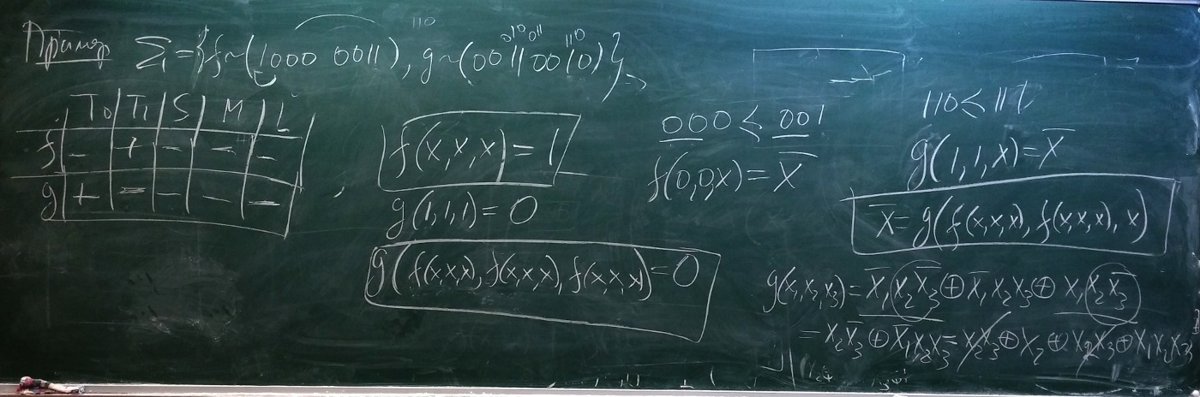 Пример Σ₁={f~(1000 0011), g~(0011 0010)}
110
010 011 110
T₀ | T₁ | S | M | L
f | − | + | − | − | −
g | + | − | − | − | −
f(x,x,x)=1
g(1,1,1)=0
g(f(x,x,x),f(x,x,x),f(x,x,x))=0
000<001
f(0,0,x)=x̄
110≤111
g(1,1,x)=x̄
x̄=g(f(x,x,x), f(x,x,x), x)
g(x₁,x₂,x₃)=x̄₁x₂x̄₃⊕x̄₁x₂x₃⊕x₁x₂x̄₃
=x₂x̄₃⊕x̄₁x₂x₃=x₂x₃⊕x₂⊕x₂x₃⊕x₁x₂x₃